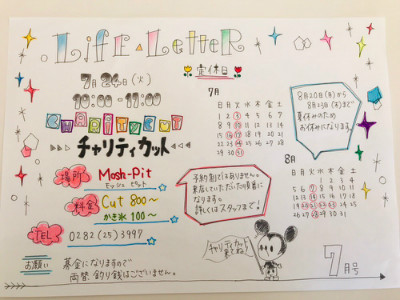 LIFE LETTER
7月24日(火)
10:00-11:00
CHARITY CUT
チャリティカット
場所 Mosh-Pit
モッシュピット
料金 Cut 800〜
かき氷 100〜
TEL 0282(25)3997
お願い 募金になりますので
両替、釣り銭はございません。
定休日
7月
日月火水木金土
1 2 3 4 5 6 7
8 9 10 11 12 13 14
15 16 17 18 19 20 21
22 23 24 25 26 27 28
29 30 31
8月20日(月)から
夏休みのため
お休みになります。
8月
日月火水木金土
1 2 3 4
5 6 7 8 9 10 11
12 13 14 15 16 17 18
19 20 21 22 23 24 25
26 27 28 29 30 31
予約制ではありません。
来店していただいた順番に
なります。
詳しくはスタッフまで!
チャリティカット
来てね!
7月号